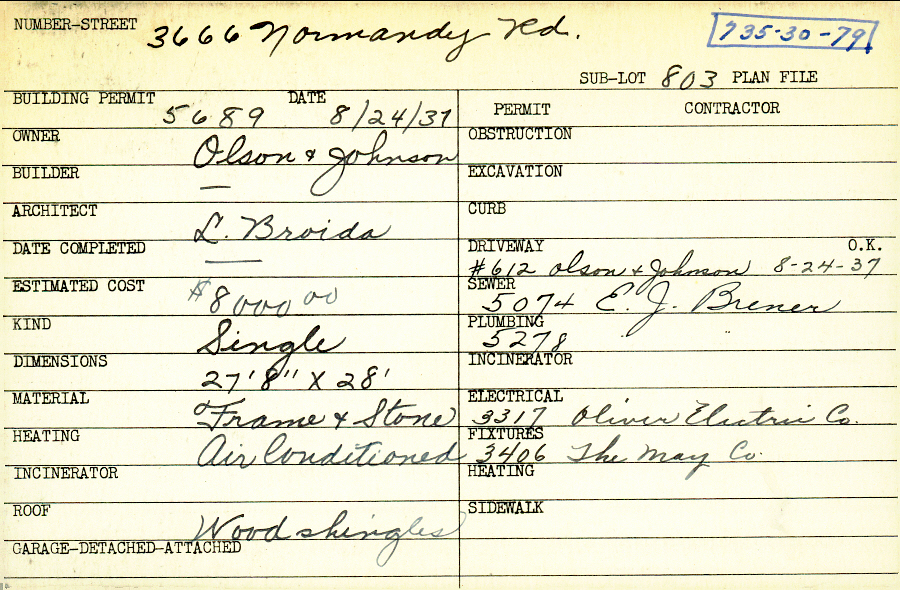 NUMBER-STREET 3666 Normandy Rd.
735-30-79
SUB-LOT 803 PLAN FILE
BUILDING PERMIT 5689 DATE 8/24/37
OWNER Olson & Johnson
BUILDER —
ARCHITECT L. Broida
DATE COMPLETED —
ESTIMATED COST $8000.00
KIND Single
DIMENSIONS 27'8" X 28'
MATERIAL Frame & Stone
HEATING Air Conditioned
INCINERATOR
ROOF Wood shingles
GARAGE-DETACHED-ATTACHED
PERMIT CONTRACTOR
OBSTRUCTION
EXCAVATION
CURB
DRIVEWAY O.K.
#612 Olson & Johnson 8-24-37
SEWER
5074 E. J. Brener
PLUMBING
5278 "
INCINERATOR
ELECTRICAL
3317 Oliver Electric Co.
FIXTURES
3406 The May Co.
HEATING
SIDEWALK